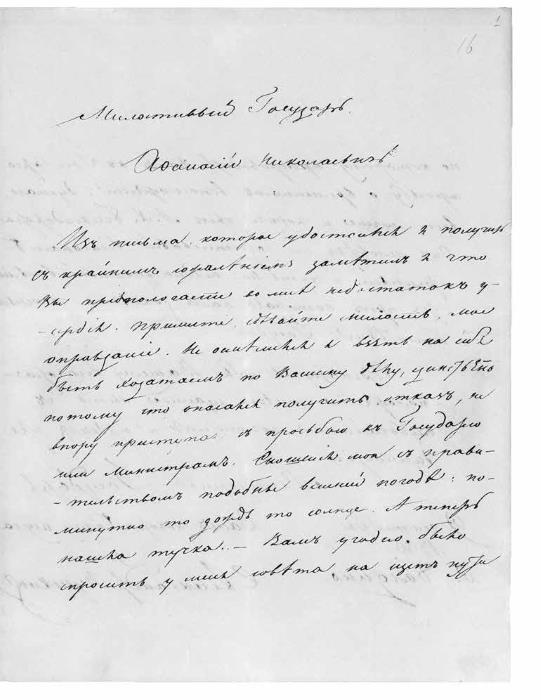 1
16
Милостивый Государь
Афанасий Николаевичь
Изъ письма которое удостоился я получить
съ крайнимъ сожалѣніемъ замѣтилъ я что
Вы предпологаете во мнѣ недостатокъ у-
-сердія. Примите, сдѣлайте милость, мое
оправданіе. Не осмѣлился я взять на себя
быть ходатаемъ по Вашему дѣлу, единственно
потому что опасался получить отказъ, не
впору приступая съ просьбою къ Государю
или Министрамъ. Сношенія мои съ прави-
-тельствомъ подобны вешней погодѣ: по-
минутно то дождь то солнце. А теперь
нашла тучка.. — Вамъ угодно было
спросить у меня совѣта на щетъ пути